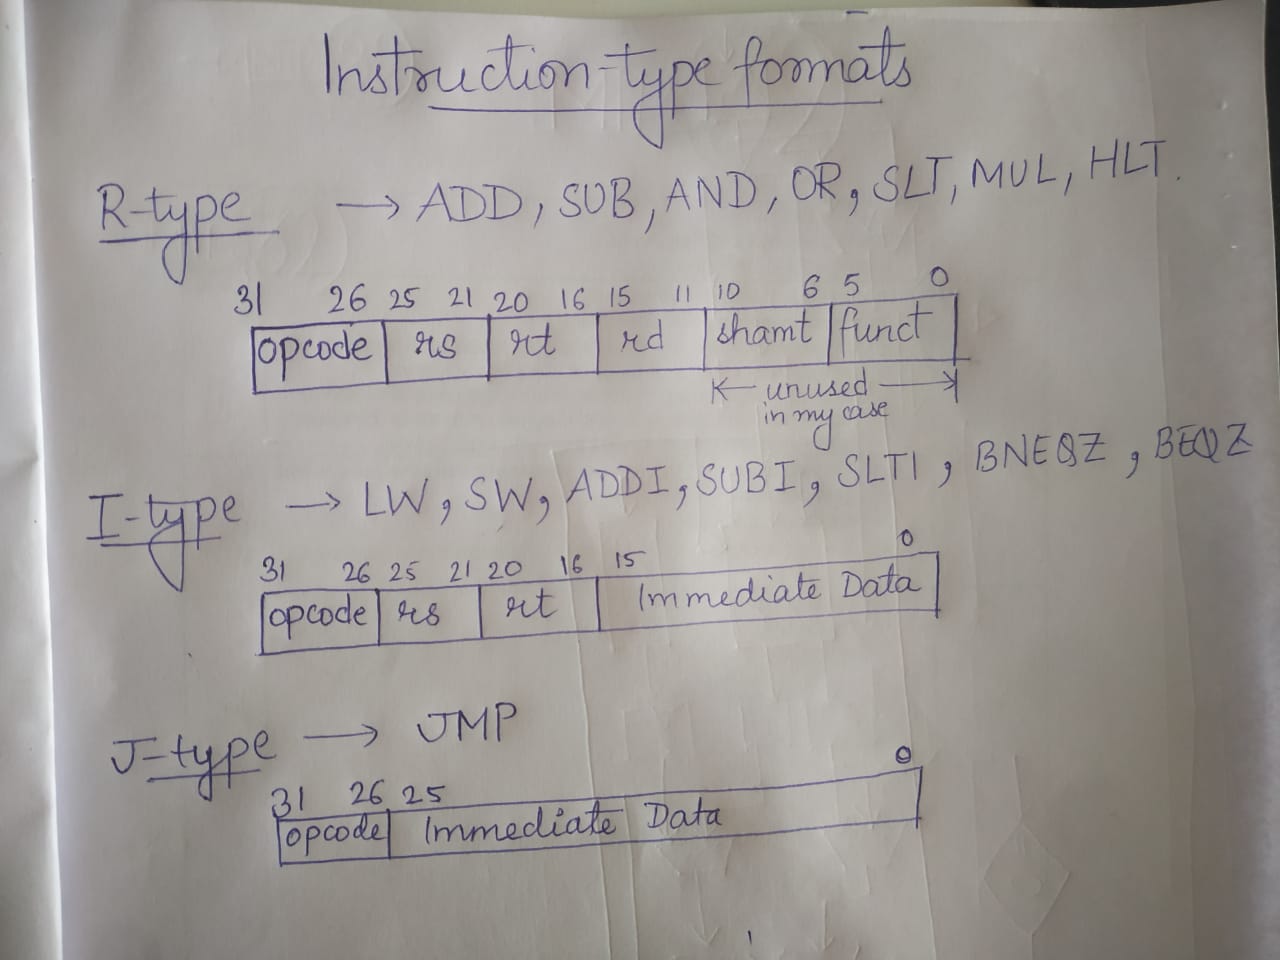 Instruction-type formats
R-type → ADD, SUB, AND, OR, SLT, MUL, HLT.
31 26 25 21 20 16 15 11 10 6 5 0
opcode rs rt rd shamt funct
← unused →
in my case
I-type → LW, SW, ADDI, SUBI, SLTI, BNEQZ, BEQZ
31 26 25 21 20 16 15 0
opcode rs rt Immediate Data
J-type → JMP
31 26 25 0
opcode Immediate Data